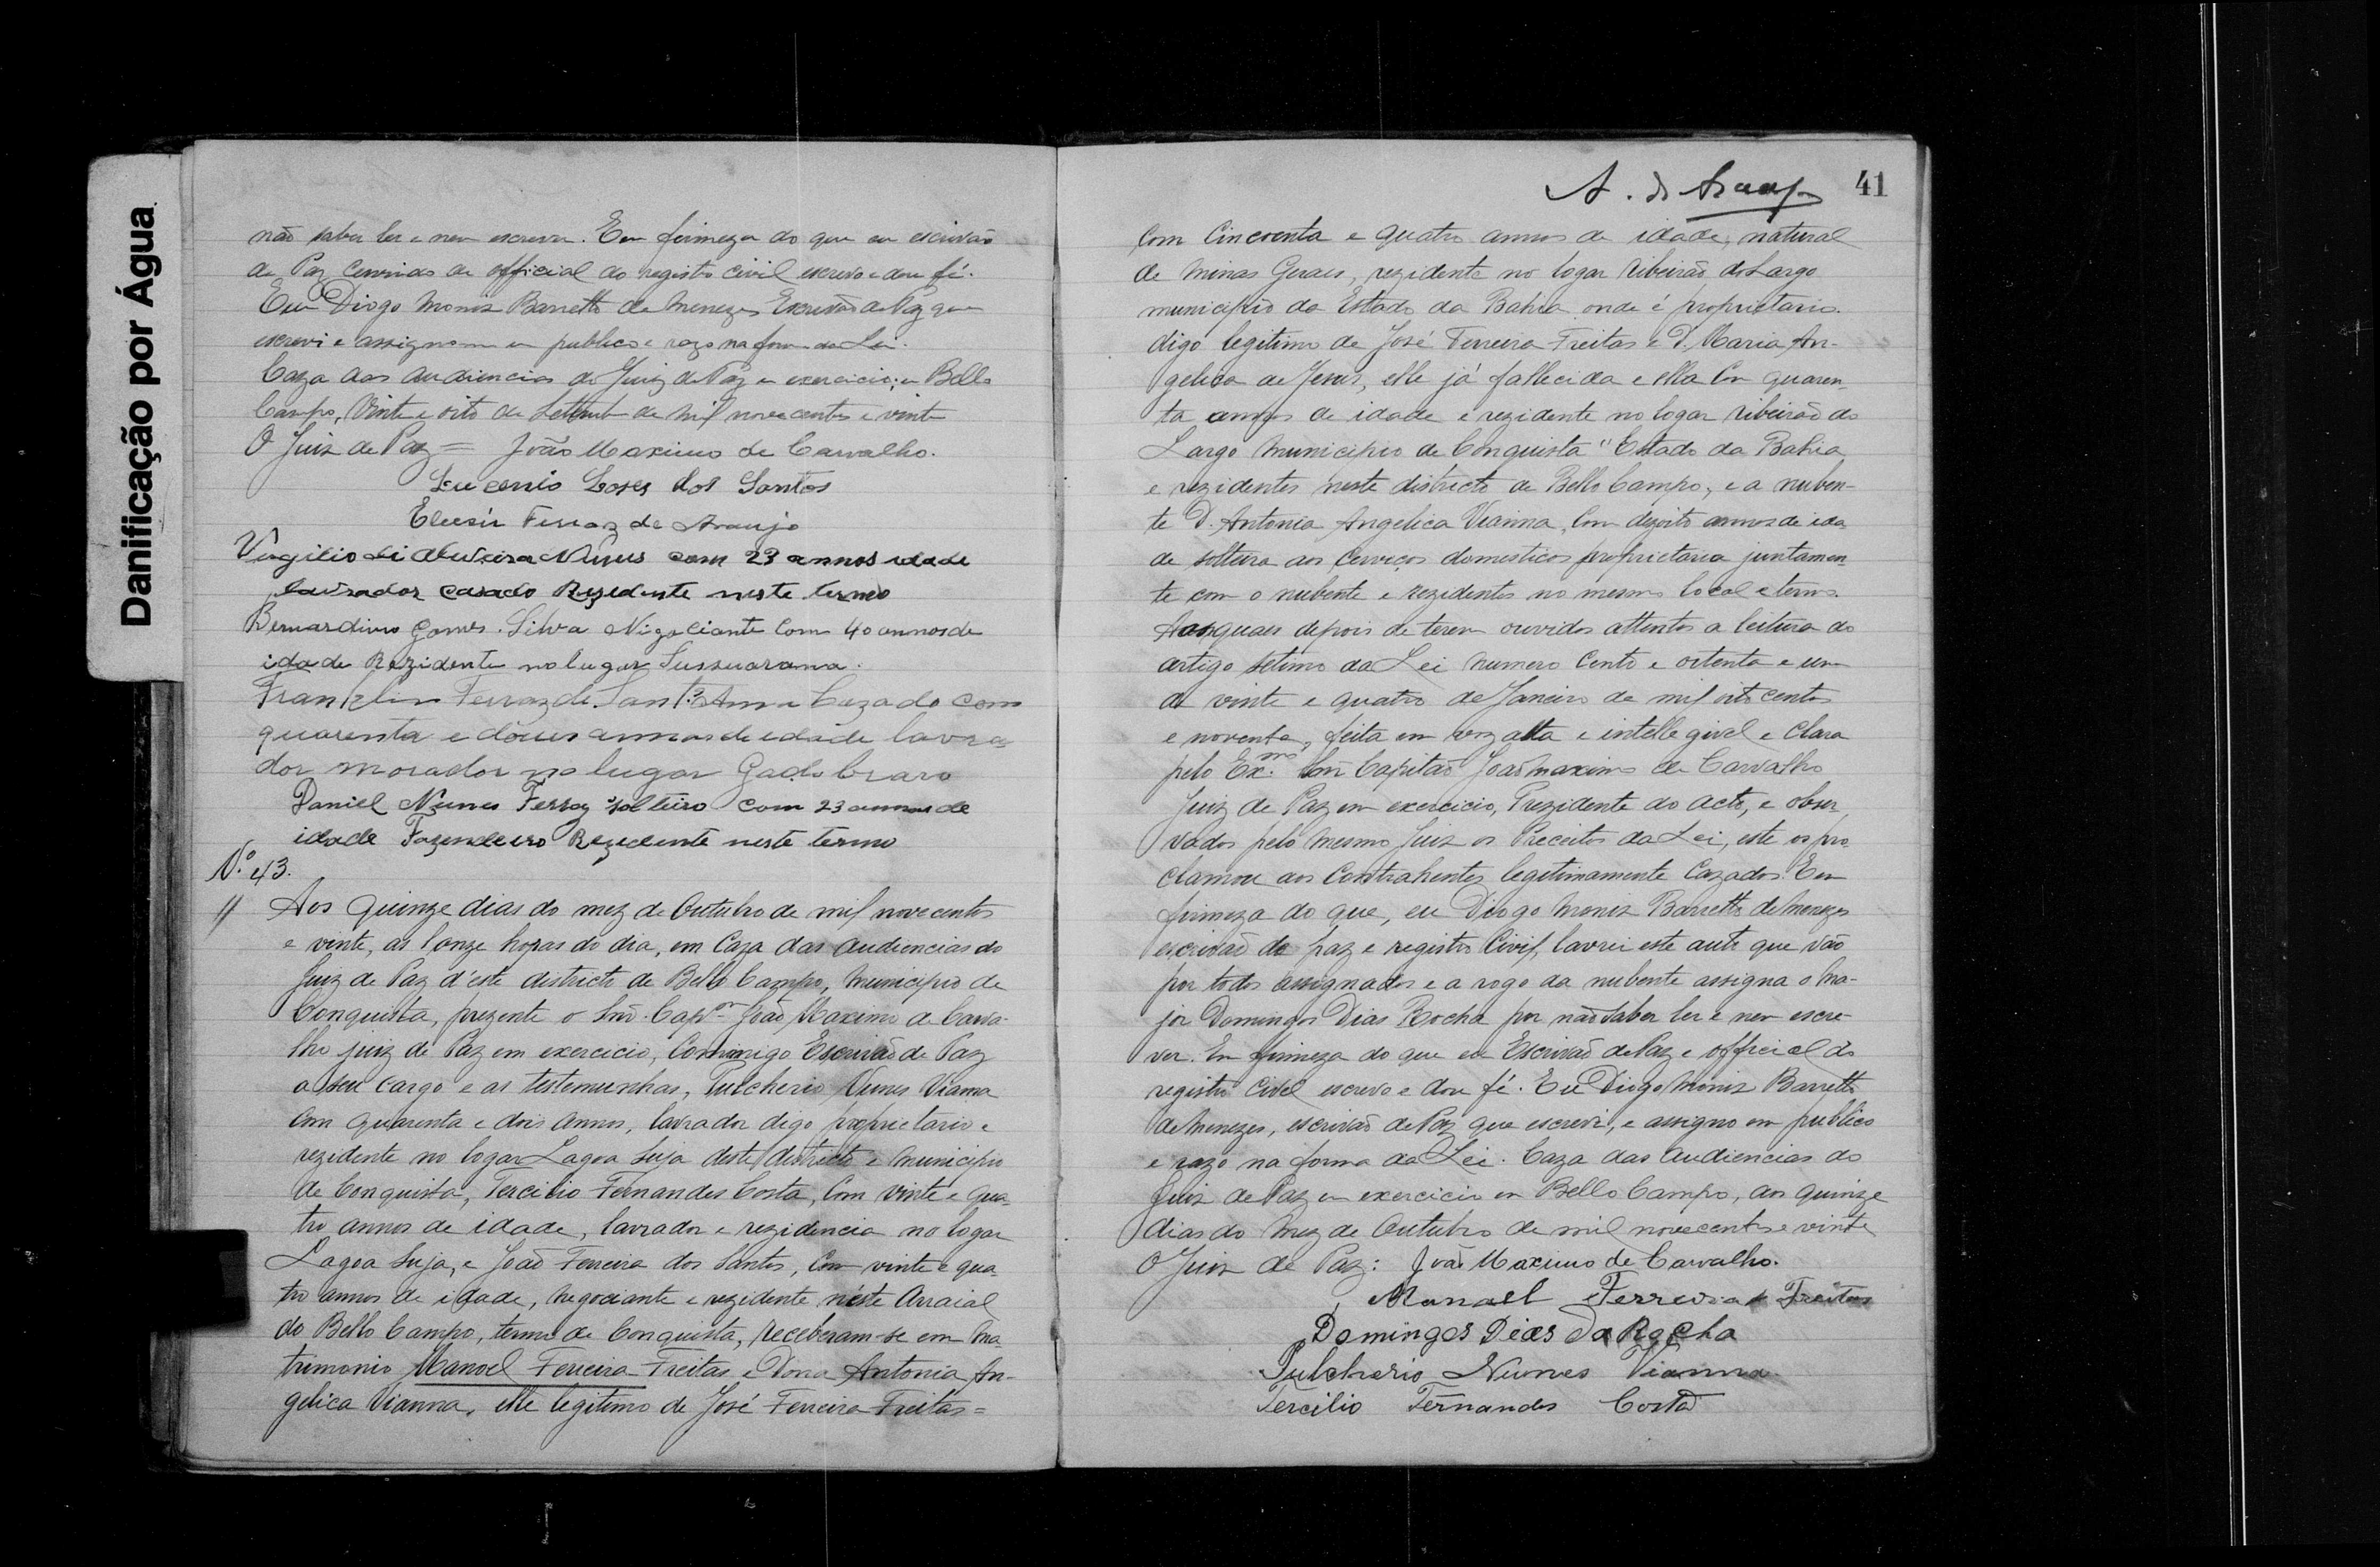 Danificação por Água
não saber ler e nem escrever. Em firmeza do que eu escrivão
de Paz servindo de official do registo civil escrevo e dou fé.
Eu Diogo Moniz Barretto de Menezes Escrivão de Paz que
escrevi e assigno em publico e razo na forma da Lei.
Caza das Audiencias do Juiz de Paz em exercicio, em Bello
Campo, Vinte e oito de Setembro de mil nove centos e vinte
O Juiz de Paz = João Maximo de Carvalho.
dos Santos
Ferraz de Araujo
Virgilio de Oliveira com 23 annos idade
lavrador casado Rezidente neste termo
Bernardino Gomes Silva Nigociante Com 40 annos de
idade Rezidente no lugar Sussuarana.
Franklin Ferraz de Sant'Anna Cazado com
quarenta e dous annos de edade lavra
dor morador no lugar Gado bravo
Daniel Nunes Ferraz solteiro com 23 annos de
idade Fazendeiro Rezidente neste termo
N.º 43.
Aos quinze dias do mez de Outubro de mil nove centos
e vinte, as honze horas do dia, em Caza das audiencias do
Juiz de Paz d'este districto de Bello Campo, Municipio de
Conquista, prezente o Snr. Capm. João Maximo de Carva-
lho juiz de Paz em exercicio, Commigo Escrivão de Paz
a seu cargo e as testemunhas, Pulcherio Nunes Vianna
com quarenta e dois annos, lavrador digo proprietario e
rezidente no logar Lagoa Suja deste districto e municipio
de Conquista, Tercilio Fernandes Costa, Com vinte e qua-
tro annos de idade, lavrador e rezidencia no logar
Lagoa Suja, e João Ferreira dos Santos, Com vinte e qua-
tro annos de idade, negociante e rezidente n'este Arraial
do Bello Campo, termo de Conquista, receberam-se em Ma-
trimonio Manoel Ferreira Freitas e Dona Antonia An-
gelica Vianna, elle legitimo de José Ferreira Freitas =
A. de Araujo 41
Com Cincoenta e quatro annos de idade, natural
de Minas Geraes, rezidente no logar Ribeirão do Largo
municipio do Estado da Bahia onde é proprietario.
digo legitimo de José Ferreira Freitas e D. Maria An-
gelica de Jesus, elle já fallecido e ella Com quaren-
ta annos de idade e rezidente no logar Ribeirão do
Largo Municipio de Conquista " Estado da Bahia
e rezidentes neste districto de Bello Campo, e a nuben-
te D. Antonia Angelica Vianna, Com dezoito annos de ida
de solteira aos Cerviços domesticos proprietaria juntamen
te com o nubente e rezidentes no mesmo local e termo.
Aos quaes depois de terem ouvidos attentos a leitura do
artigo setimo da Lei numero Cento e oitenta e um
de vinte e quatro de Janeiro de mil oito centos
e noventa, feita em voz alta e intellegivel e Clara
pelo Ex.mo Snr Capitão João Maximo de Carvalho
Juiz de Paz em exercicio, Prezidente do acto, e obser
vados pelo mesmo Juiz os Preceitos da Lei, este os pro
clamou aos Contrahentes legitimamente Cazados. Em
firmeza do que, eu Diogo Moniz Barretto de Menezes
escrivão de paz e registro Civil, lavrei este auto que vão
por todos assignados e a rogo da nubente assigna o Ma-
jor Domingos Dias Rocha por não saber ler e nem escre-
ver. Em firmeza do que eu Escrivão de Paz e official do
registro Civel escrevo e dou fé. Eu Diogo Moniz Barretto
de Menezes, escrivão de Paz que escrevi, e assigno em publico
e razo na forma da Lei. Caza das Audiencias do
Juiz de Paz em exercicio em Bello Campo, aos quinze
dias do mez de Outubro de mil nove centos e vinte
O Juiz de Paz: João Maximo de Carvalho.
Manoel Ferreira Freitas
Domingos Dias da Rocha
Pulcherio Nunes Vianna
Tercilio Fernandes Costa